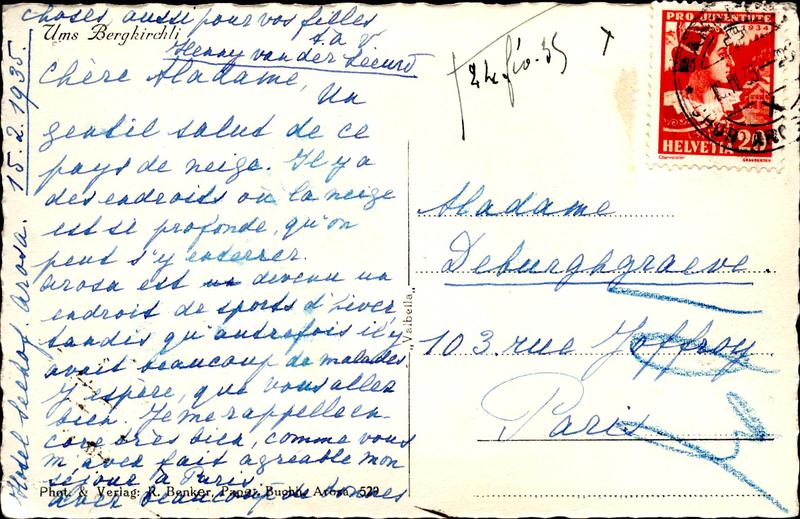 choses, aussi pour vos filles
t. à v.
Ums Bergkirchli
Henny van der Leeuw
Chère Madame, Un
gentil salut de ce
pays de neige. Il y a
des endroits où la neige
est si profonde, qu'on
peut s'y enterrer.
Arosa est un devenu un
endroit de sports d'hiver
tandis qu'autrefois il y
avait beaucoup de malades.
J'espère, que vous allez
bien. Je me rappelle en-
core très bien, comme vous
m'avez fait agréable mon
séjour à Paris
avec beaucoup de bonnes
Phot. & Verlag: R. Benker, Paper. Buchh. Arosa 529
Hotel Seehof Arosa. 15.2.1935.
„Valbella"
PRO JUVENTUTE
1934
HELVETIA 20
GRAUBÜNDEN
CHUR
Madame
Deburghgraeve.
103. rue Joffroy.
Paris